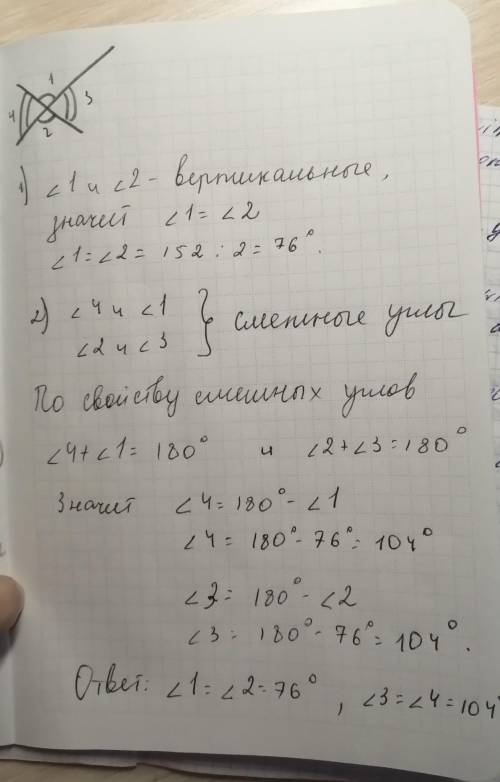 1
4 3
2
1) ∠1 и ∠2 - вертикальные,
значит ∠1 = ∠2
∠1 = ∠2 = 152 : 2 = 76°.
2) ∠4 и ∠1 } смежные углы
∠2 и ∠3
По свойству смежных углов
∠4 + ∠1 = 180° и ∠2 + ∠3 = 180°
Значит ∠4 = 180° - ∠1
∠4 = 180° - 76° = 104°
∠3 = 180° - ∠2
∠3 = 180° - 76° = 104°.
Ответ: ∠1 = ∠2 = 76°, ∠3 = ∠4 = 104°